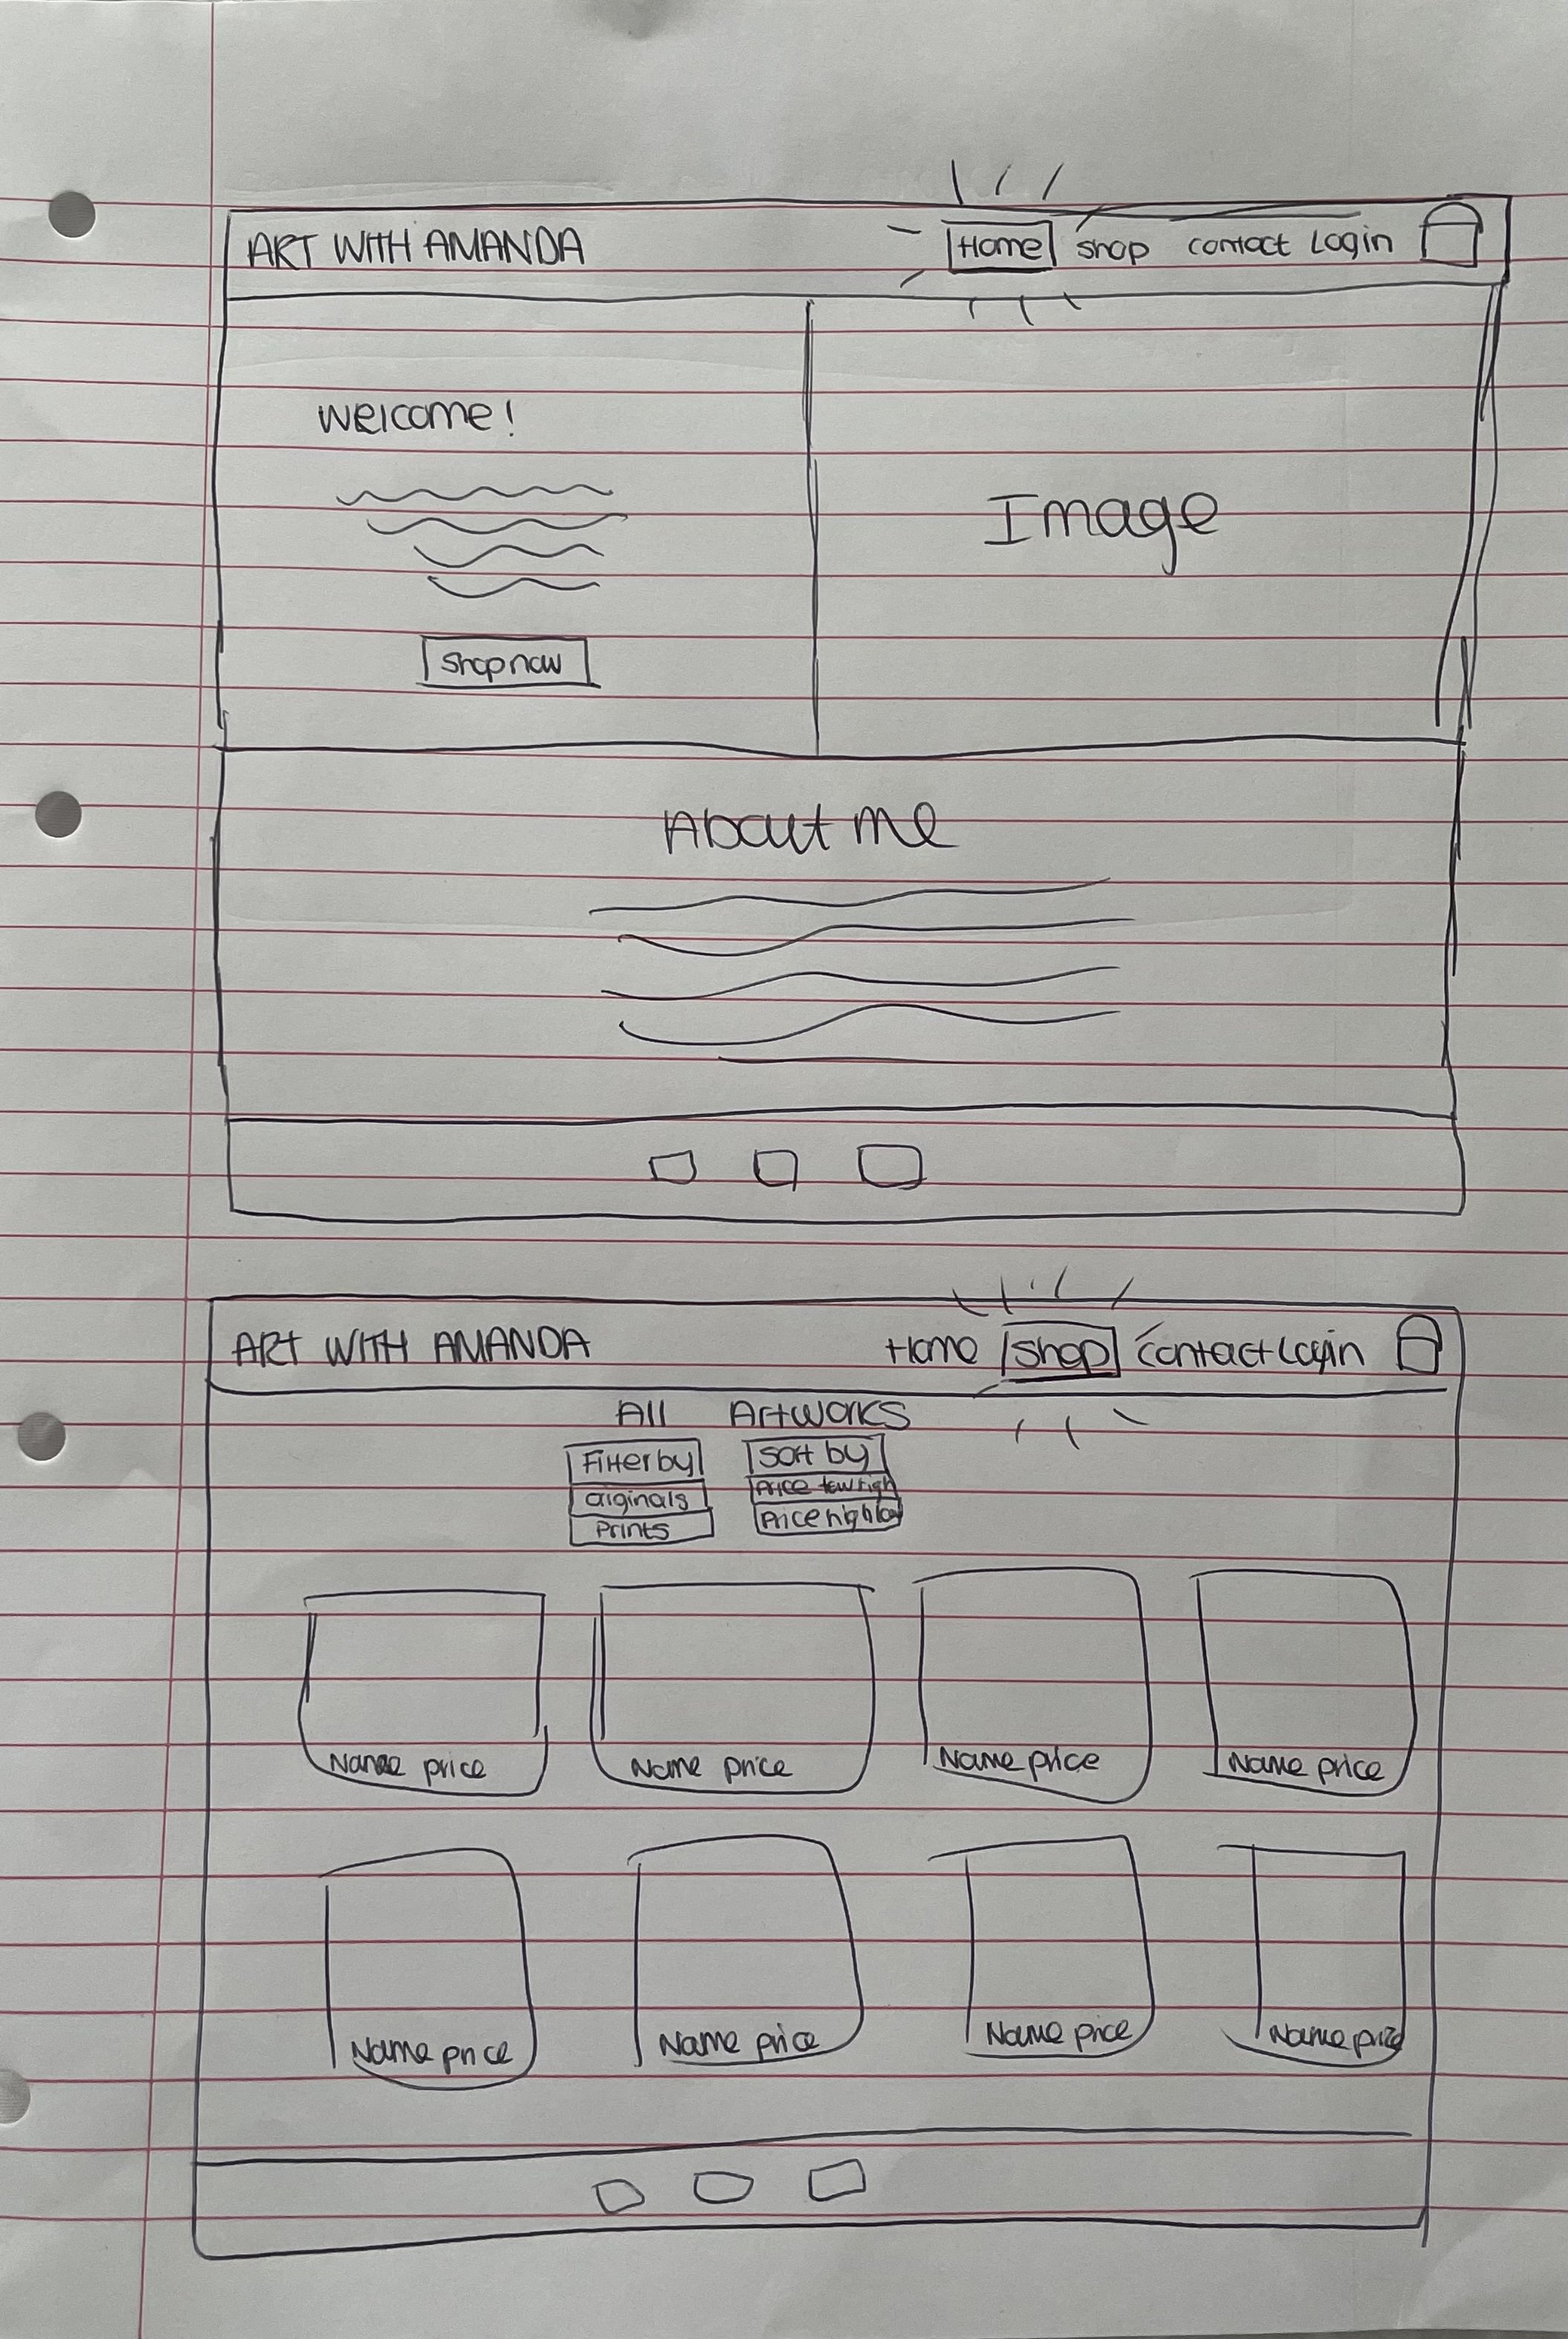 ART WITH AMANDA Home shop contact Login
Welcome!
Image
shop now
About me
ART WITH AMANDA Home shop contact Login
All Artworks
Filter by Sort by
originals Price low high
Prints Price high low
Name price Name price Name price Name price
Name price Name price Name price Name price